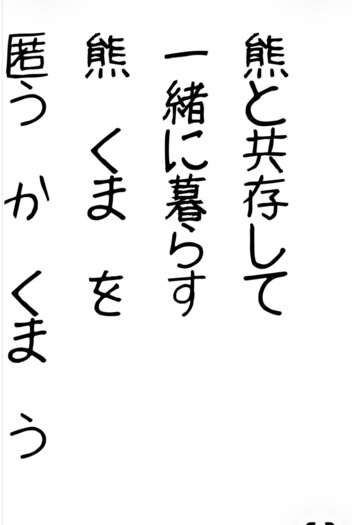 熊と共存して
一緒に暮らす
熊 くま を
匿う か くま う